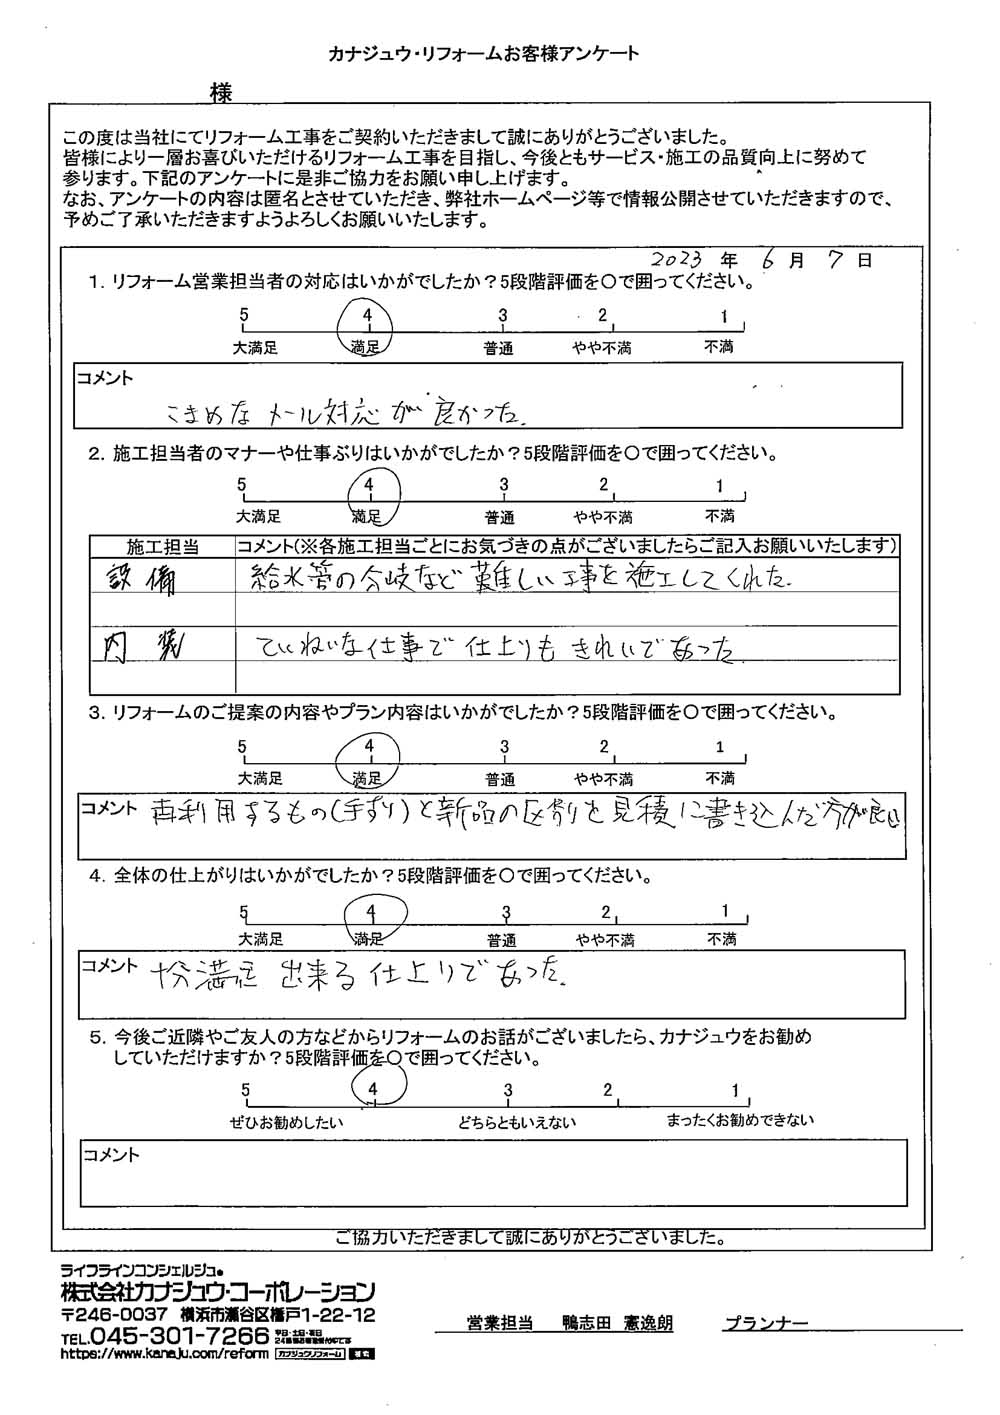 カナジュウ・リフォームお客様アンケート
様
この度は当社にてリフォーム工事をご契約いただきまして誠にありがとうございました。
皆様により一層お喜びいただけるリフォーム工事を目指し、今後ともサービス・施工の品質向上に努めて
参ります。下記のアンケートに是非ご協力をお願い申し上げます。
なお、アンケートの内容は匿名とさせていただき、弊社ホームページ等で情報公開させていただきますので、
予めご了承いただきますようよろしくお願いいたします。
2023 年 6 月 7 日
1. リフォーム営業担当者の対応はいかがでしたか？5段階評価を〇で囲ってください。
5 4 3 2 1
大満足 満足 普通 やや不満 不満
コメント
こまめなメール対応が良かった.
2. 施工担当者のマナーや仕事ぶりはいかがでしたか？5段階評価を〇で囲ってください。
5 4 3 2 1
大満足 満足 普通 やや不満 不満
施工担当 コメント(※各施工担当ごとにお気づきの点がございましたらご記入お願いいたします)
設備 給水管の分岐など難しい工事を施工してくれた.
内装 ていねいな仕事で仕上りもきれいであった
3. リフォームのご提案の内容やプラン内容はいかがでしたか？5段階評価を〇で囲ってください。
5 4 3 2 1
大満足 満足 普通 やや不満 不満
コメント 再利用するもの(手すり)と新品の区別を見積に書き込んだ方が良い
4. 全体の仕上がりはいかがでしたか？5段階評価を〇で囲ってください。
5 4 3 2 1
大満足 満足 普通 やや不満 不満
コメント 十分満足出来る仕上りであった.
5. 今後ご近隣やご友人の方などからリフォームのお話がございましたら、カナジュウをお勧め
していただけますか？5段階評価を〇で囲ってください。
5 4 3 2 1
ぜひお勧めしたい どちらともいえない まったくお勧めできない
コメント
ご協力いただきまして誠にありがとうございました。
ライフラインコンシェルジュ
株式会社カナジュウ・コーポレーション
〒246-0037 横浜市瀬谷区橋戸1-22-12
TEL.045-301-7266
https://www.kanaju.com/reform カナジュウリフォーム 検索
営業担当 鴨志田 憲逸朗 プランナー